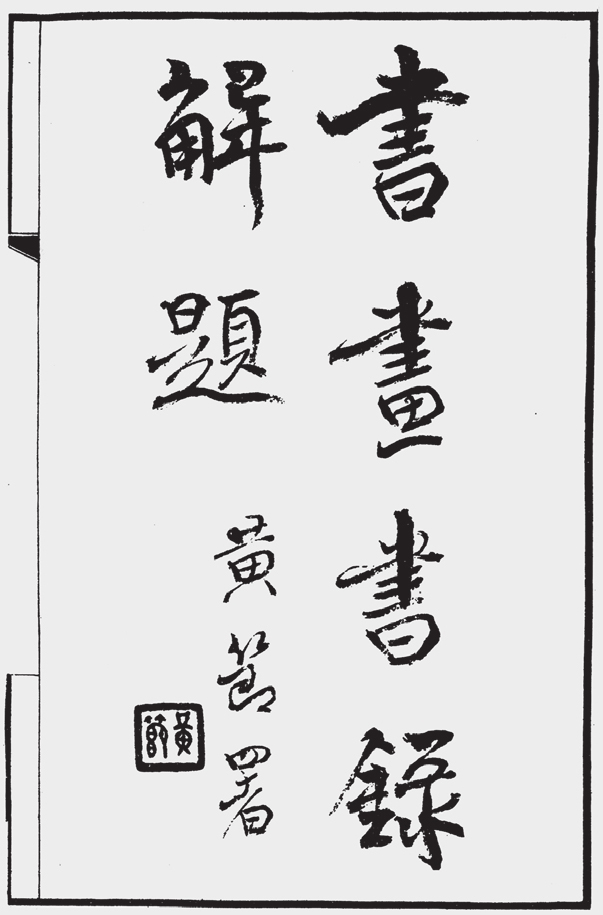 書畫書錄
解題
黃節署
黃節